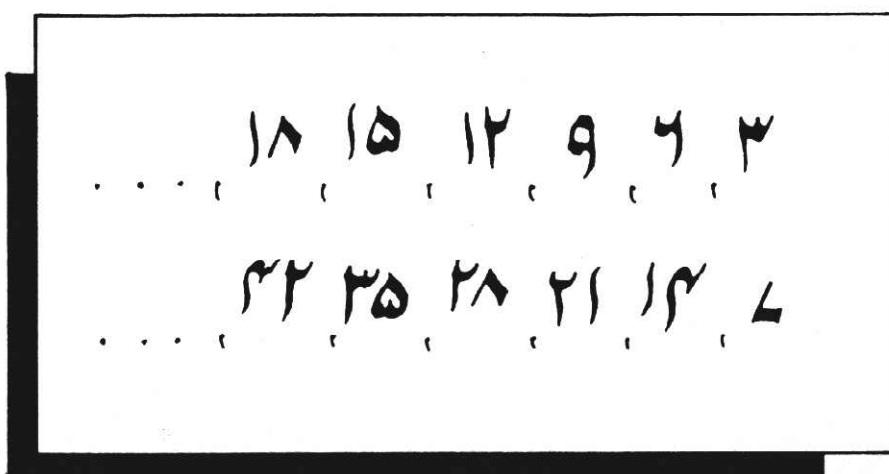 ۳ ، ۶ ، ۹ ، ۱۲ ، ۱۵ ، ۱۸ ، . . .
۷ ، ۱۴ ، ۲۱ ، ۲۸ ، ۳۵ ، ۴۲ ، . . .